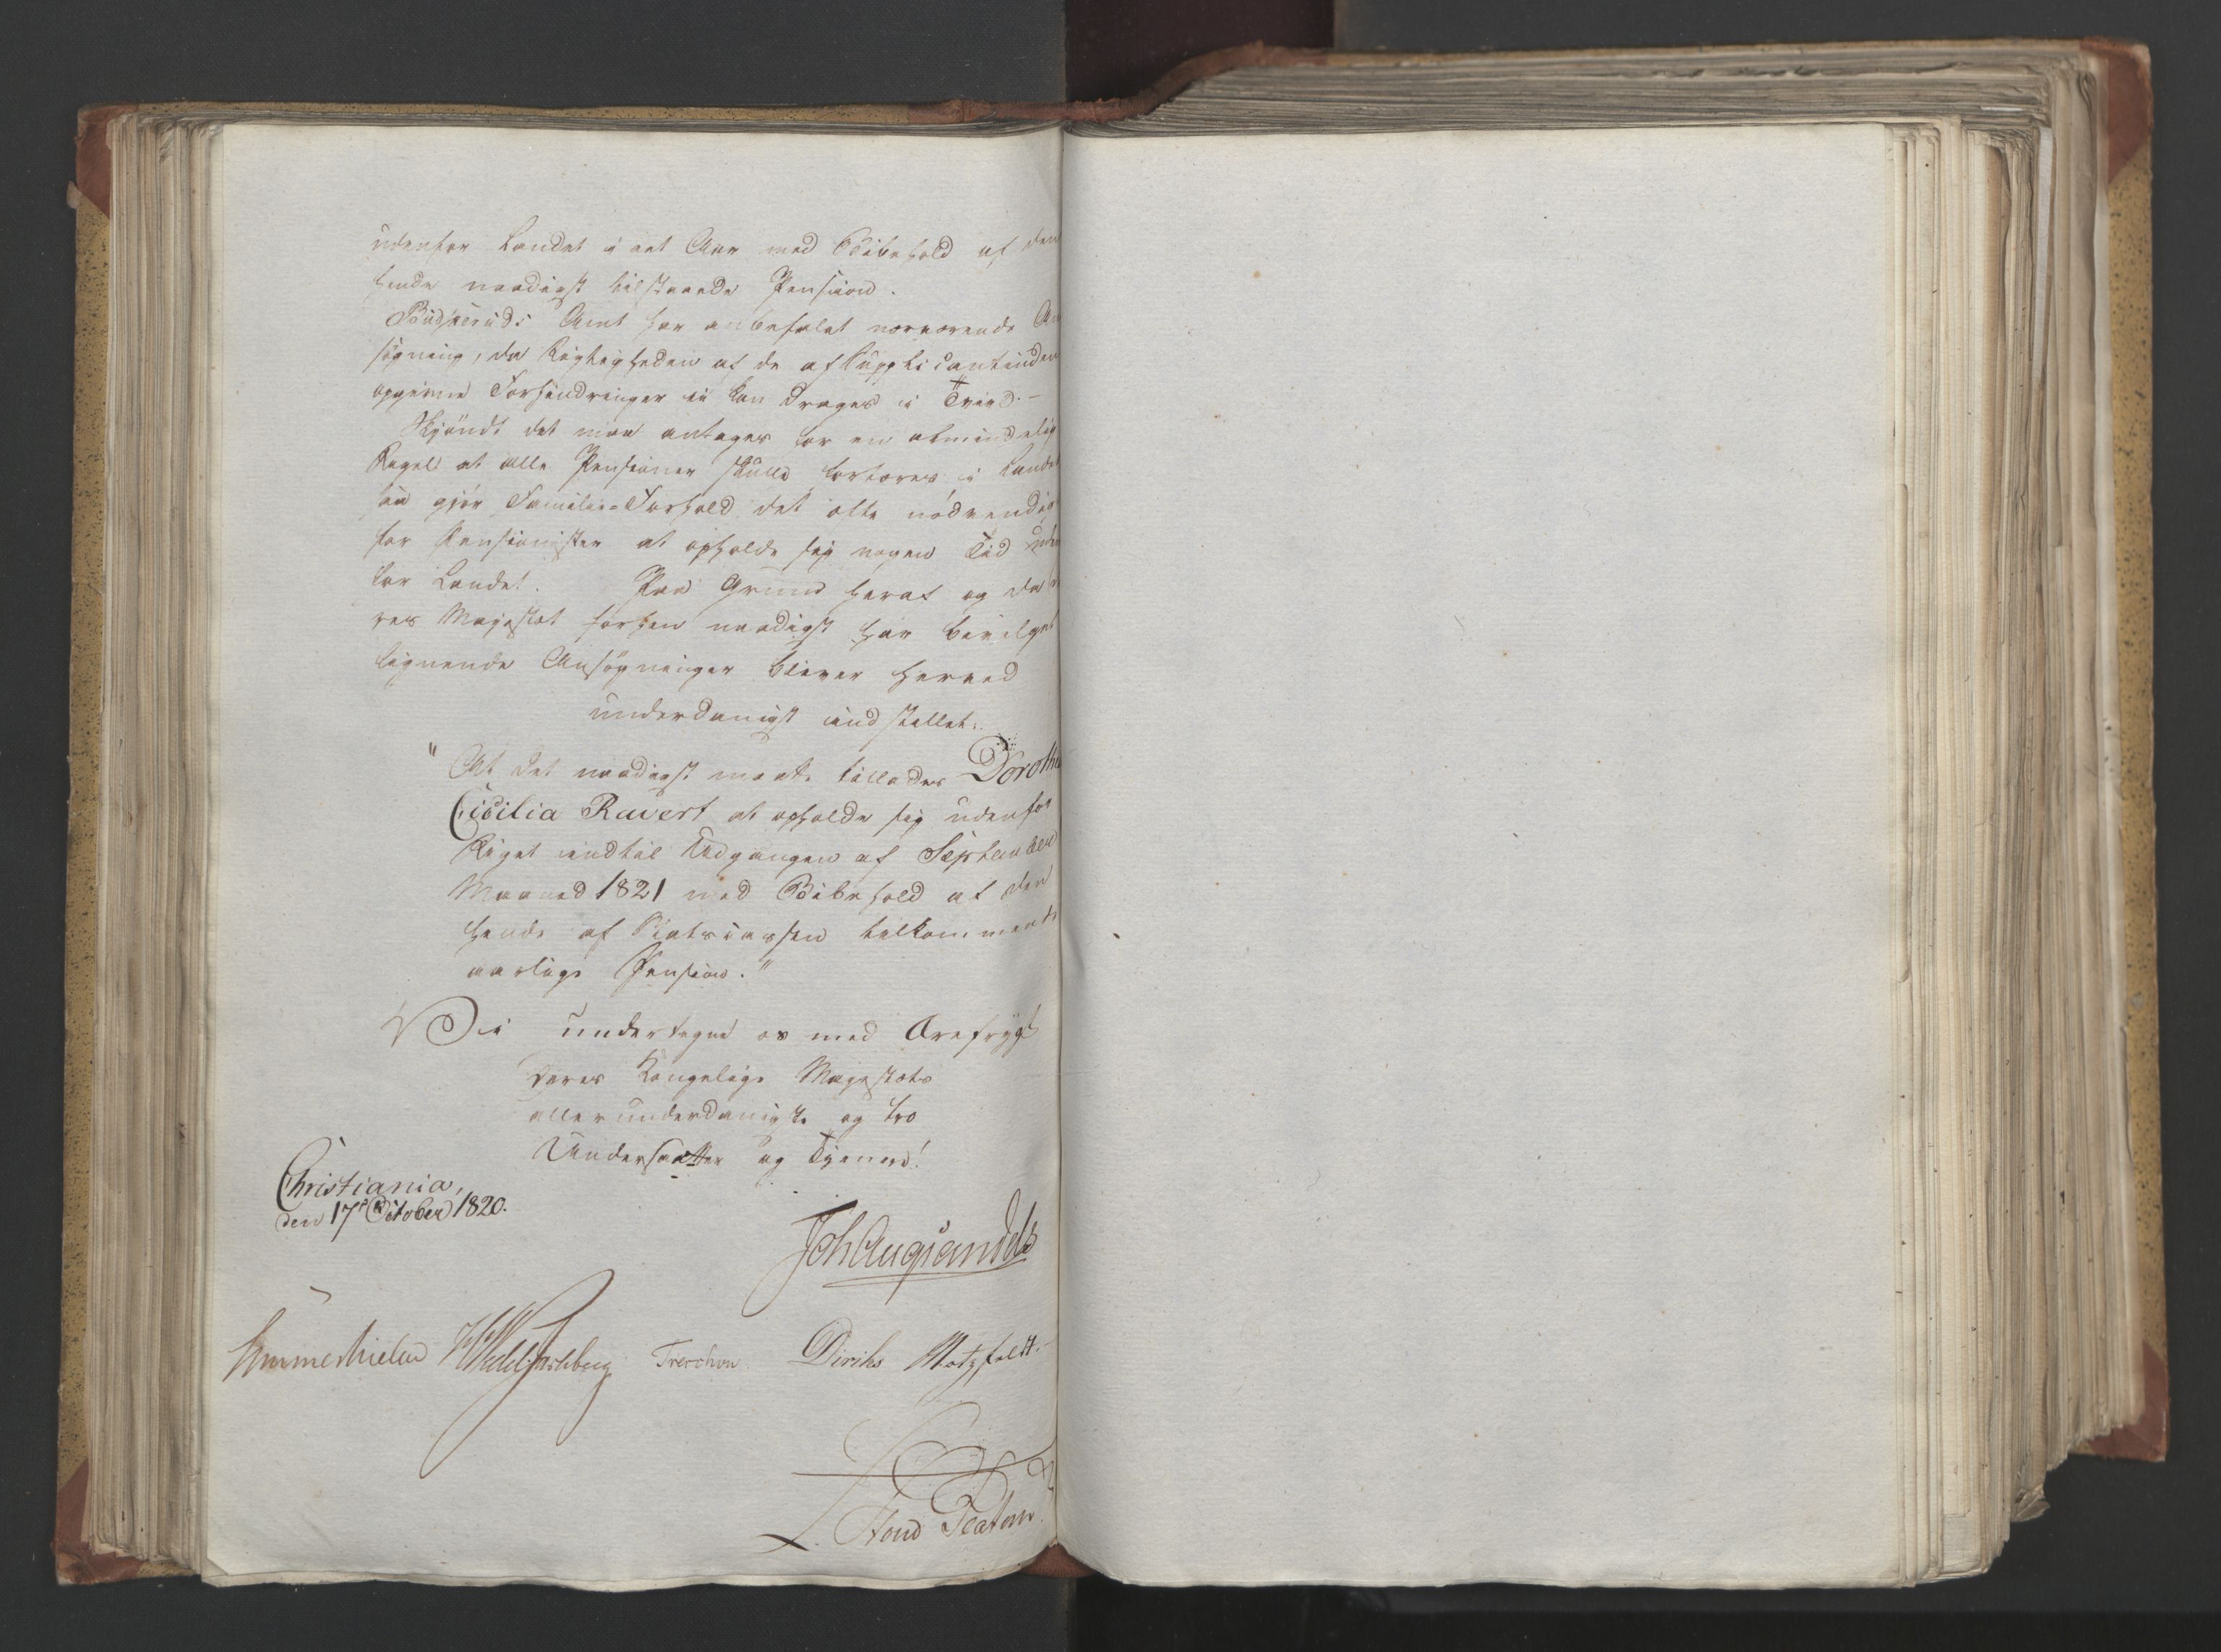 udenfor Landet i eet Aar med Bibehold af den
hende naadigst tilstaaede Pension.
Budskeruds Amt har anbefalet nærværende An
søgning, da Rigtigheden af de af Supplicantinden
opgivne Forhindringer ei kan drages i Tvivl.-
Skjöndt det maa antages for en almindelig
Regel at alle Pensioner skulle fortæres i Landet
saa gjör Familie-Forhold det ofte nödvendig
for Pensionister at opholde sig nogen Tid uden
for Landet. Paa Grund heraf og da
res Majestæt forhen naadigst har bevilget
lignende Ansögninger bliver herved
underdanigst indstillet:
"At det naadigst maatte tillades Dorothea
Cicilia Ravert at opholde sig udenfor
Riget indtil Udgangen af September
Maaned 1821 med Bibehold af den
hende af Statscassen tilkommende
aarlige Pension."
Vi undertegne os med Ærefrygt
Deres Kongelige Majestæts
allerunderdanigste og tro
Undersaatter og Tjenere!
Christiania,
den 17d October 1820.
Joh Aug Sandels
Sommerhielm HWedelJarlsberg Treschow Diriks Motzfeldt.
L. Stoud Platou